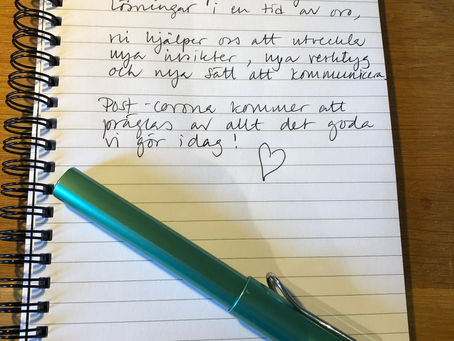 Lösningar i en tid av oro,
ni hjälper oss att utveckla
nya insikter, nya verktyg
och nya sätt att kommunicera
Post-corona kommer att
präglas av allt det goda
vi gör idag!